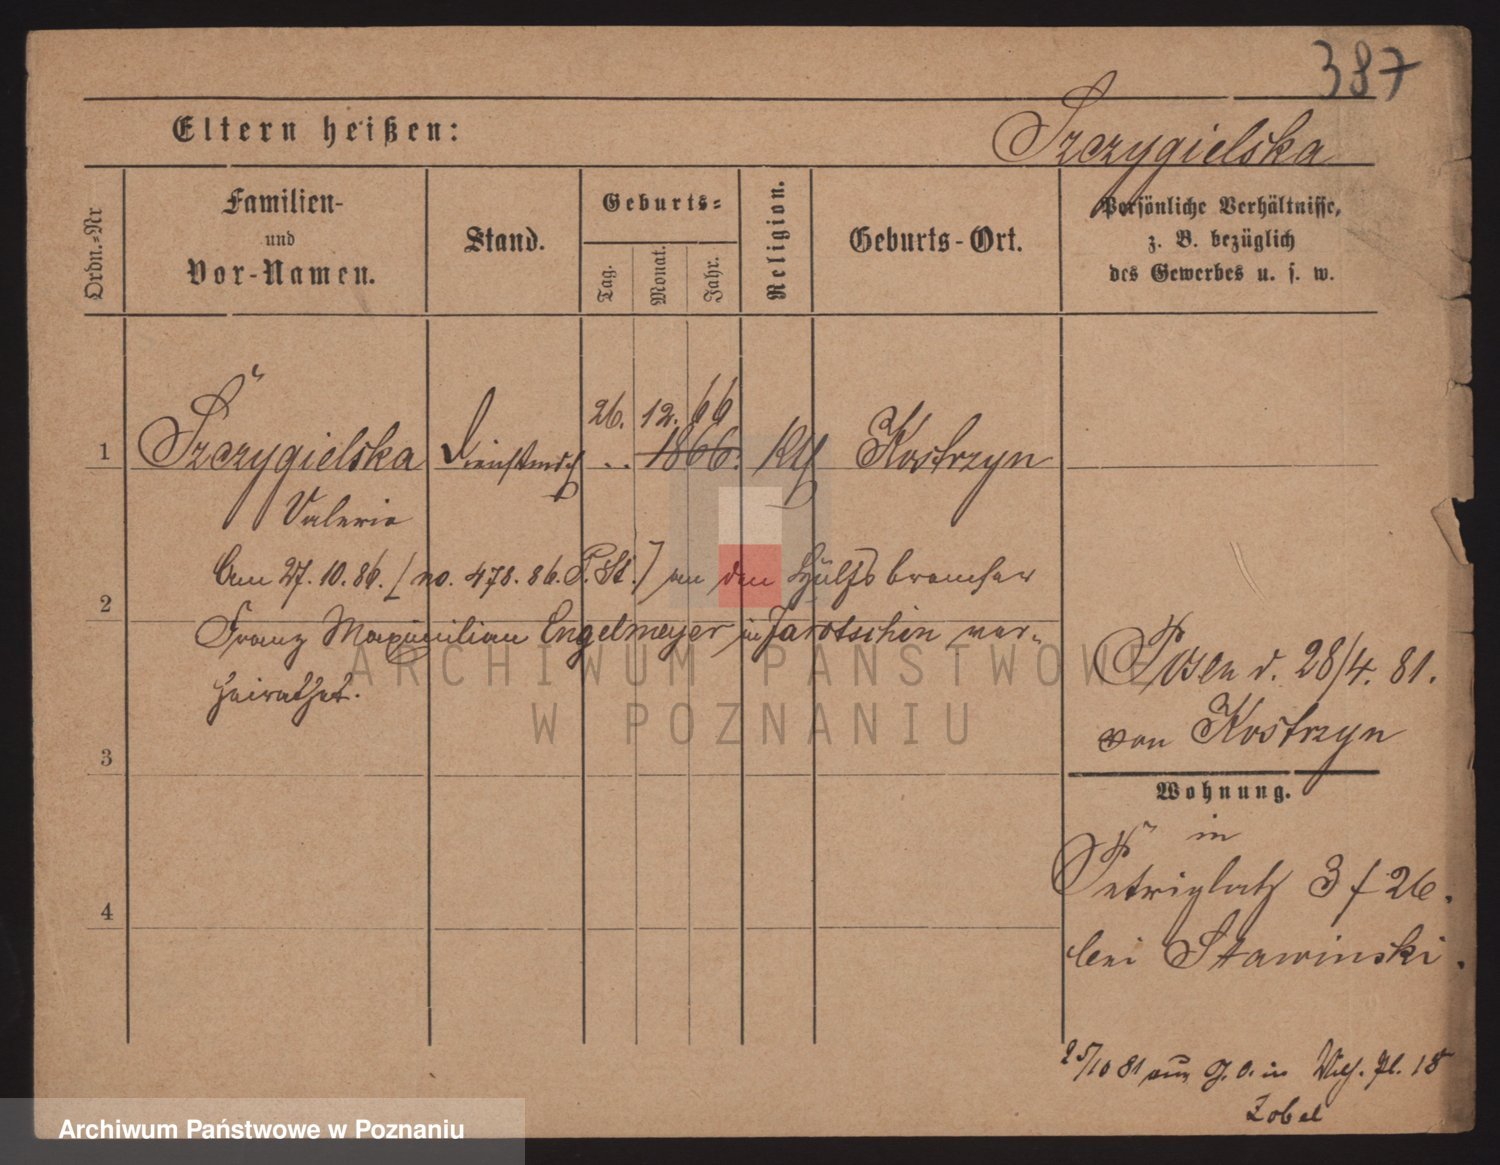 387
Eltern heißen:
Szczygielska
Ordn.=Nr
Familien-
und
Vor-Namen.
Stand.
Geburts=
Tag.
Monat.
Jahr.
Religion.
Geburts-Ort.
Persönliche Verhältnisse,
z. B. bezüglich
des Gewerbes u. s. w.
26. 12. 66
1 Szczygielska Dienstmdch .. 1866. Kth Kostrzyn
Valeria
Am 27.10.86. [no. 478.86. P. St.] an den Hülfsbremser
2
Franz Maximilian Engelmeyer in Jarotschin ver-
heirathet.
3
4
Posen d. 28/4. 81.
von Kostrzyn
Wohnung.
in
Petriplatz 3 f 26.
bei Stawinski.
25/10 81 aus g. O. in Wilh. Pl. 18
Zobel
ARCHIWUM PAŃSTWOWE
W POZNANIU
Archiwum Państwowe w Poznaniu